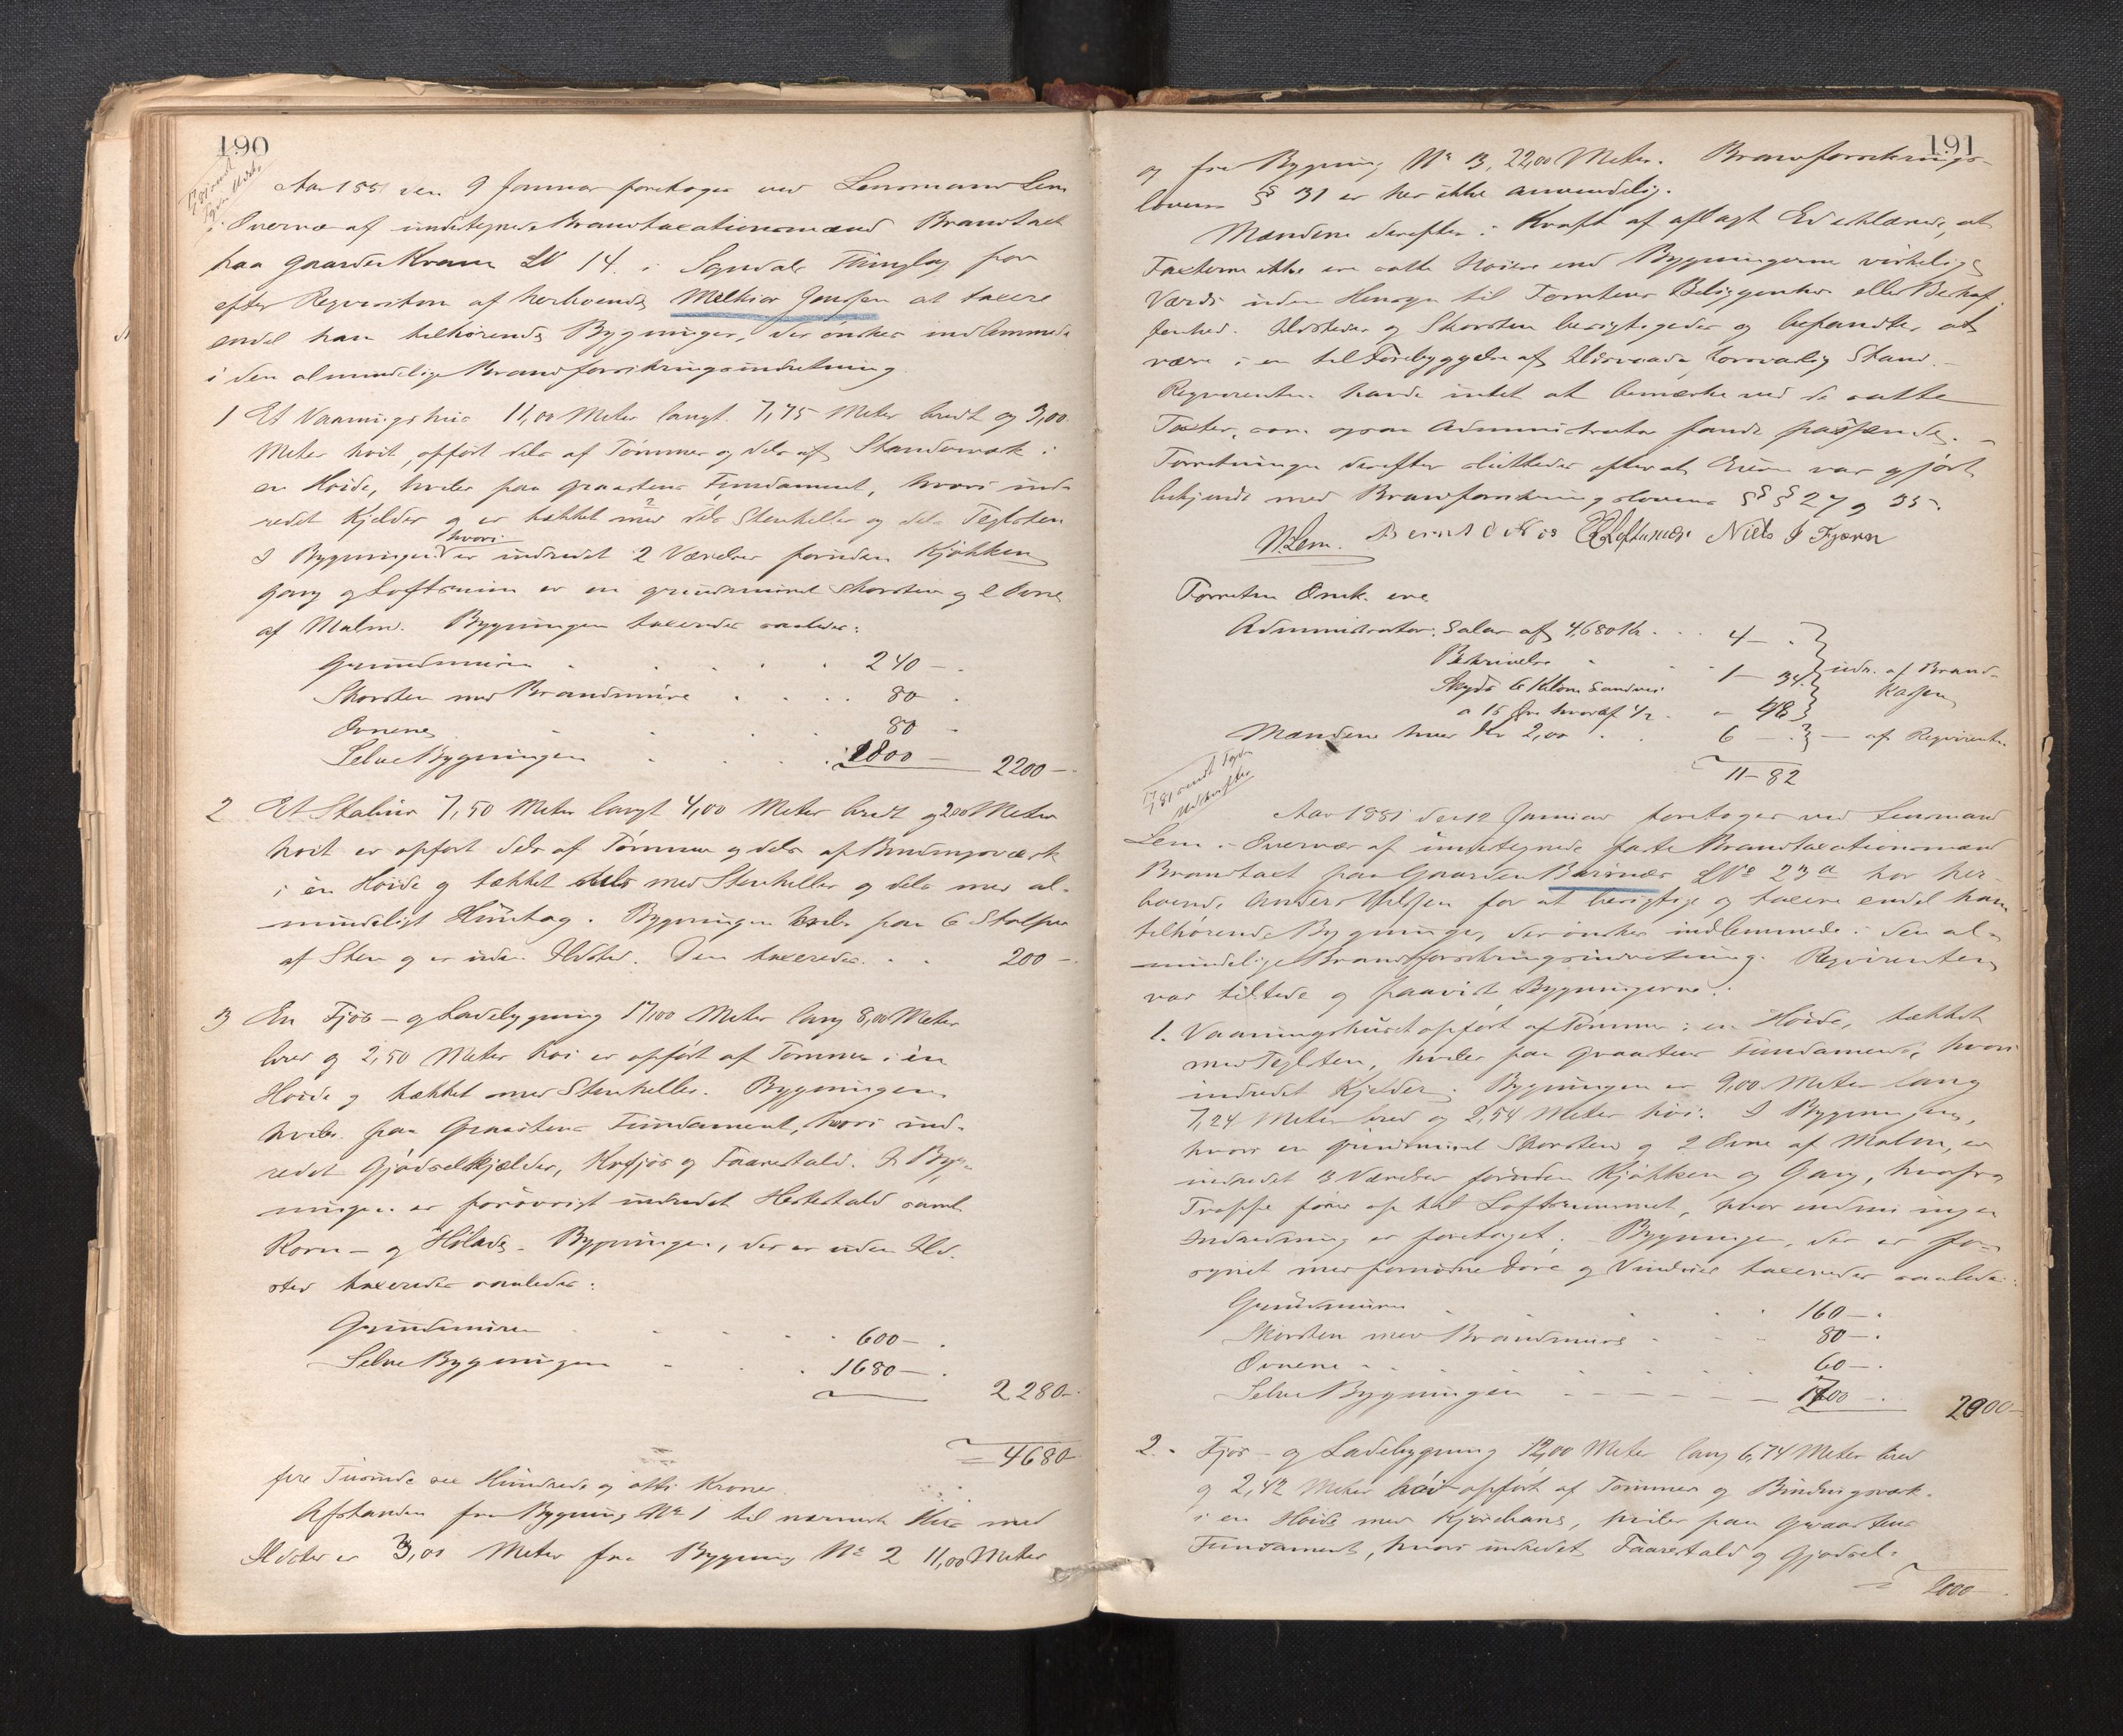 190
Aar 1881 den 9 Januar foretoges ved Lensmand Lem
i Overvær af undertegnede Brandtaxationsmænd Brandtaxt
paa Gaarden Kvam LN 14 i Sogndals Thinglag for
efter Reqvisition af herboende Melkior Jensen at taxere
endel ham tilhørende Bygninger, der ønskes indlemmede
i den almindelige Brandforsikringsindretning.
1 Et Vaaningshus 11,00 Meter langt 7,75 Meter bredt og 3,00
Meter høit, opført dels af Tømmer og dels af Standværk i
en Høide, hviler paa graastens Fundament, hvori ind-
redet Kjelder og er tækket med dels Stenheller og dels Teglsten
hvori
I Bygningen er indredet 2 Værelser foruden Kjøkken
Gang og Loftsrum er en grundmuret Skorsten og 2 Ovne
af Malm. Bygningen taxeredes saaledes:
Grundmuren 240 —
Skorsten med Brandmure 80
Ovnene 80 —
Selve Bygningen 1800 — 2200 —
2 Et Stabur 7,50 Meter langt 4,00 Meter bredt og 2,00 Meter
høit er opført dels af Tømmer og dels af Bindingsværk
i èn Høide og tækket dels med Stenheller og dels med al-
mindeligt Huntag. Bygningen hviler paa 6 Stolper
af Sten og er uden Ildsted. Den taxeredes 200 —
3 En Fjøs- og Ladebygning 17,00 Meter lang 8,00 Meter
bred og 2,50 Meter høi er opført af Tømmer i èn
Høide og tækket med Stenheller. Bygningen
hviler paa Graastens Fundament, hvori ind-
redet Gjødselkjælder, Kufjøs og Faarestald. I Byg-
ningen er forøvrigt indredet Hestestald samt
Korn- og Hølade. Bygningen, der er uden Ild-
sted taxeredes saaledes:
Grundmuren 600 —
Selve Bygningen 1680 —
2280 —
= 4680
fire Tusinde sex Hundrede og otti Kroner
Afstanden fra Bygning No 1 til nærmeste Hus med
Ildsted er 3,00 Meter fra Bygning No 2 11,00 Meter
191
og fra Bygning No 3, 22,00 Meter. Brandforsikrings-
lovens § 31 er her ikke anvendelig.
Mændene derefter i Kraft af aflagt Ed erklærede, at
Taxterne ikke ere satte høiere end Bygningernes virkelige
Værdi uden Hensyn til Tomtens Beliggenhed eller Beskaf-
fenhed. Ildsteder og Skorsten besigtigedes og befandtes at
være i en til Forebyggelse af Ildsvaade forsvarlig Stand. —
Reqvirenten havde intet at bemærke ved de satte
Taxter, som ogsaa Administrator fandt passende. —
Forretningen derefter sluttedes efterat Eieren var gjort
bekjendt med Brandforsikringslovens §§ 27 og 35.
N. Lem. Niels J Fjærn
Administrator: Salær af 4,680 Kr. 4 —
Beskrivelse 1 — 34
Skyds 6 Kilom Landvei
a 16 Øre hvoraf 1/2 " — 48
udr. af Brand-
kassen
Mændene hver Kr 2,00 6 — — af Reqvirenten
11 — 82
Aar 1881 den 12 Januar foretoges ved Lensmand
Lem i Overvær af undertegnede faste Brandtaxationsmænd
Brandtaxt paa Gaarden Barsnæs LNo 23a hos her-
boende Anders Nilssen for at besigtige og taxere endel ham
tilhørende Bygninger, der ønskes indlemmede i den al-
mindelige Brandforsikringsindretning. Reqvirenten
var tilstede og paaviste Bygningerne:
1. Vaaningshuset opført af Tømmer i en Høide, tækket
med Teglsten, hviler paa graastens Fundament, hvori
indredet Kjelder. Bygningen er 9,00 Meter lang
7,24 Meter bred og 2,54 Meter høi. I Bygningen,
hvori en grundmuret Skorsten og 2 Ovne af Malm, er
indredet 3 Værelser foruden Kjøkken og Gang, hvorfra
Trappe fører op til Loftsrummet, hvor endnu ingen
Indredning er foretaget. Bygningen, der er for-
synet med fornødne Døre og Vinduer taxeredes saaledes:
Grundmuren 160 —
Skorsten med Brandmure 80 —
Ovnene 60 —
Selve Bygningen 1700 — 2000 —
2. Fjøs- og Ladebygning 12,00 Meter lang 6,74 Meter bred
og 2,42 Meter høi opført af Tømmer og Bindingsværk
i en Høide med , hviler paa Graastens
Fundament, hvori indredet Faarestald og Gjødsel-
2000